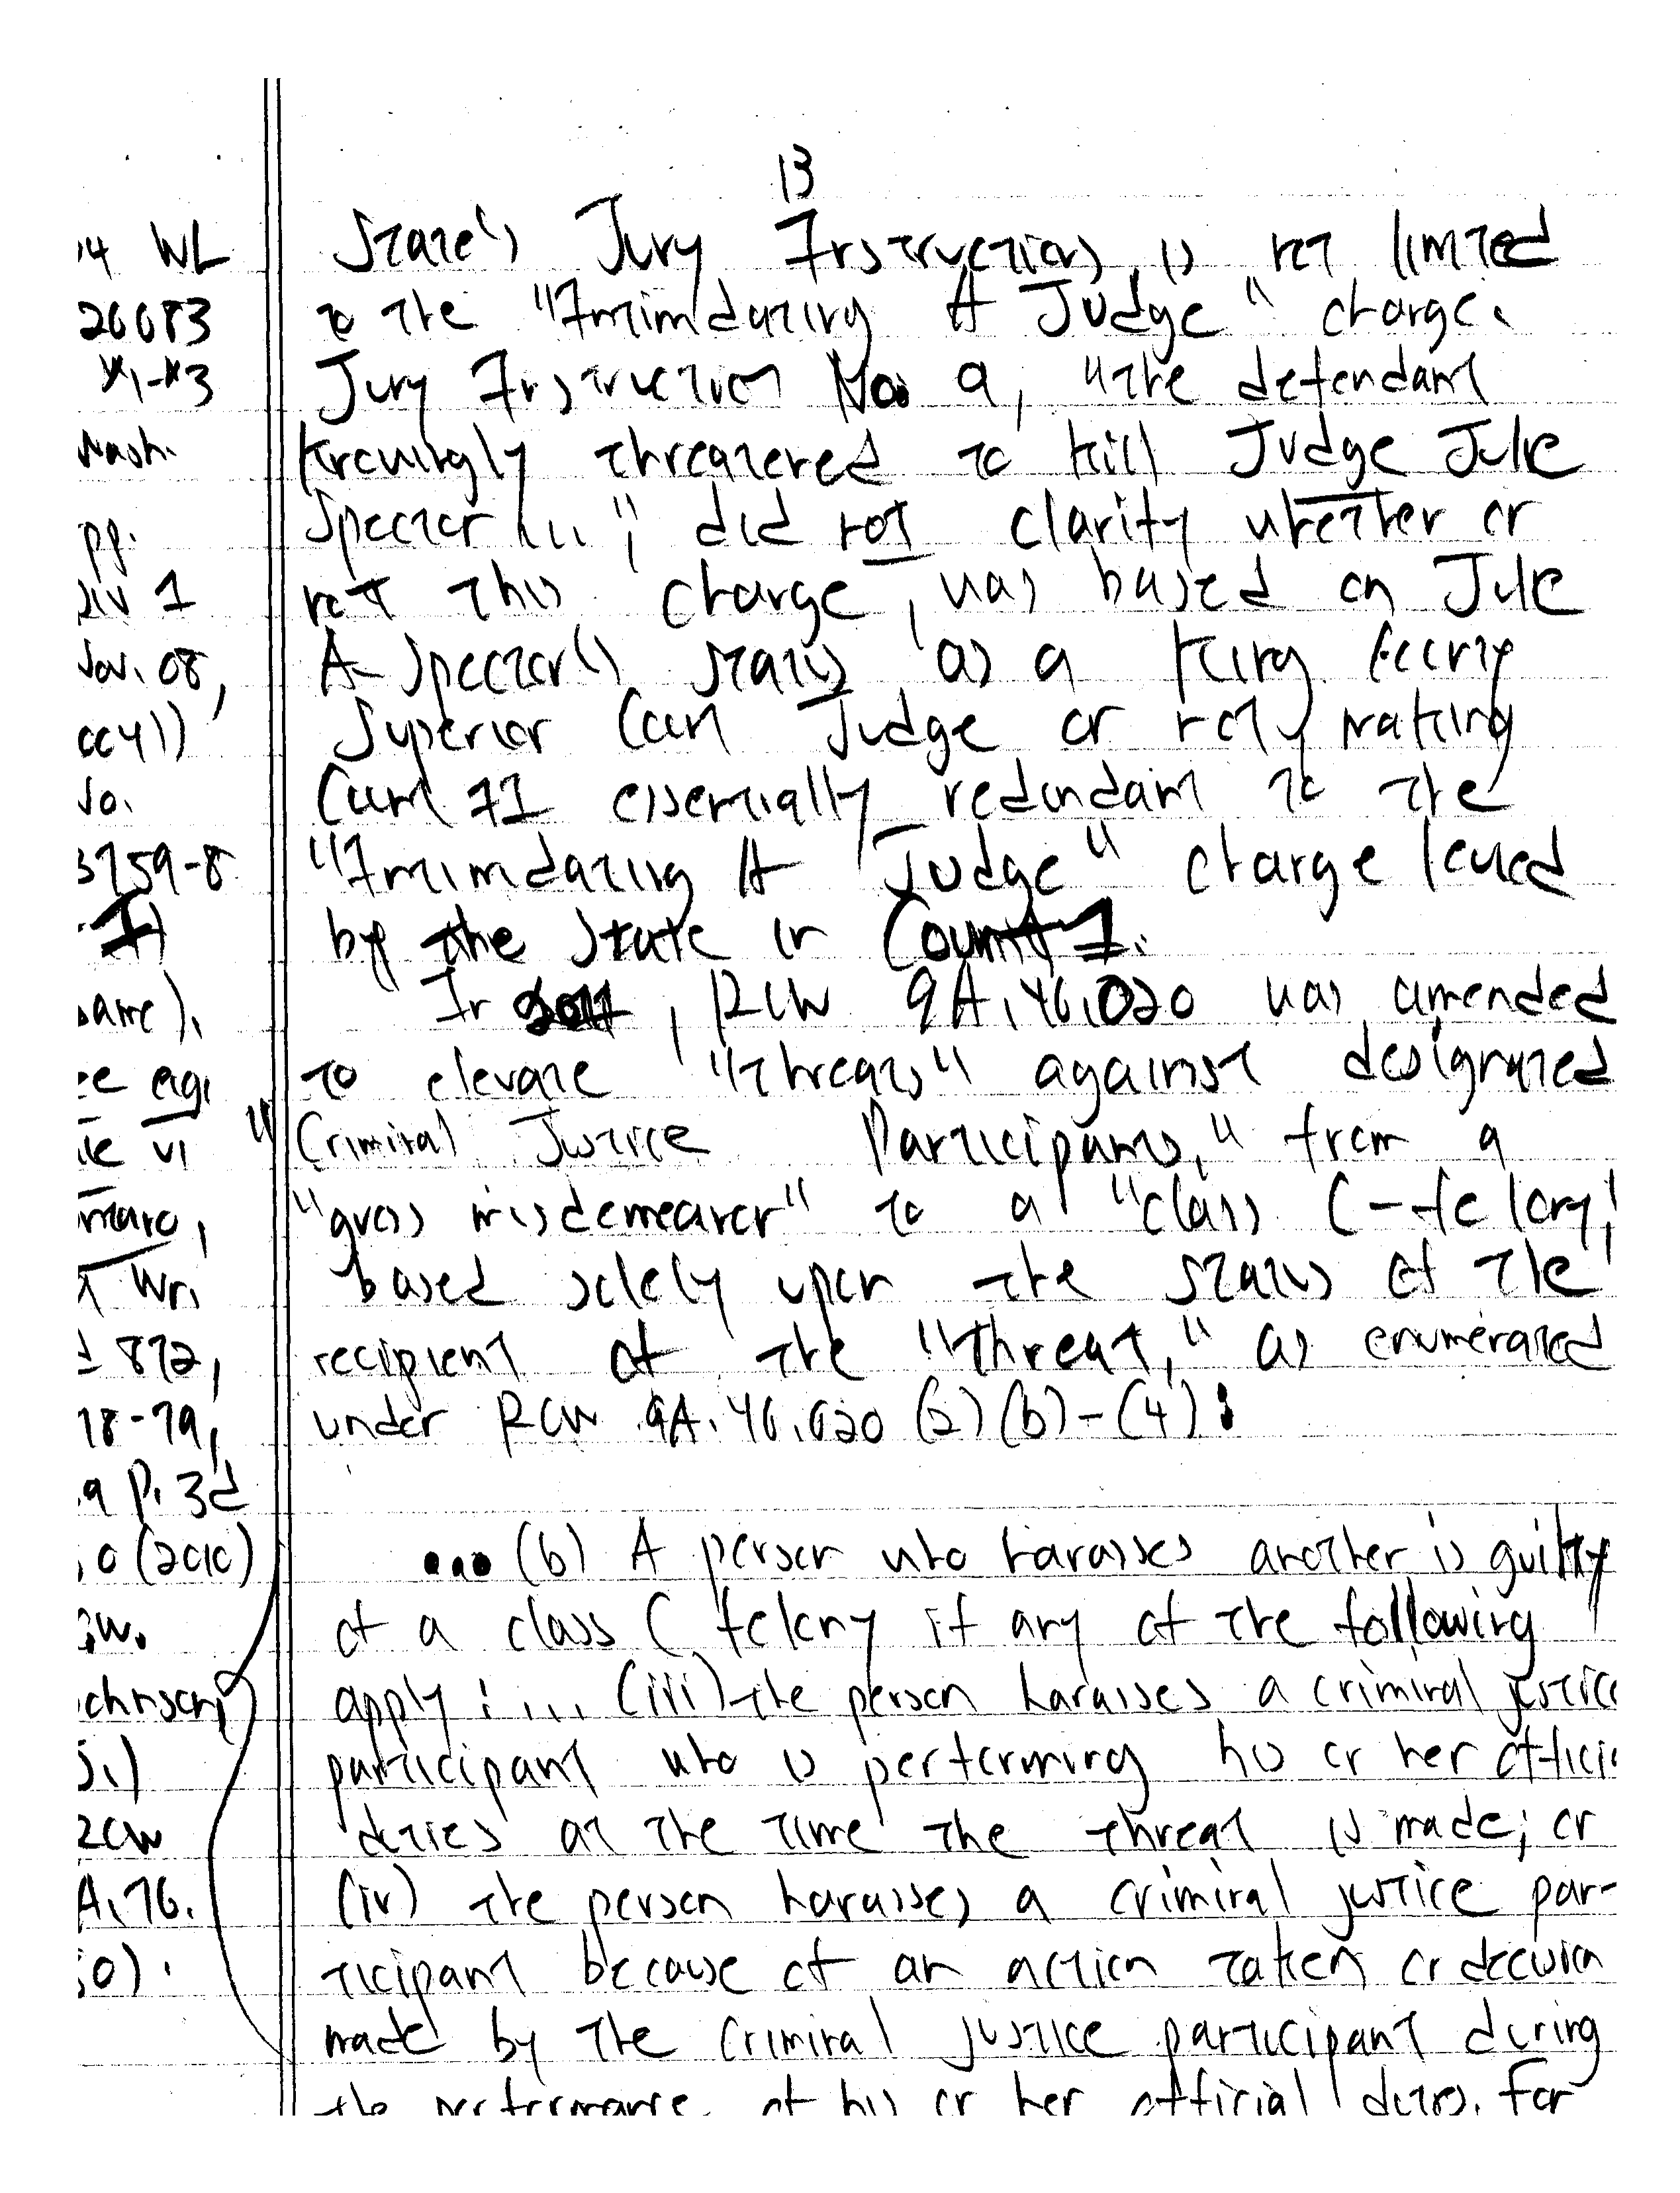 13
State's Jury Instructions, is not limited
to the "Intimidating A Judge" charge.
Jury Instruction No. 9, "the defendant
knowingly threatened to kill Judge Julie
Spector ...", did not clarify whether or
not this charge, was based on Julie
A. Spector's status as a King County
Superior Court Judge or not, making
Count II essentially redundant to the
"Intimidating A Judge" charge levied
by the State in Count 1.
In 2011, RCW 9A.46.020 was amended
to elevate "threats" against designated
"Criminal Justice Participants," from a
"gross misdemeanor" to a "class C-felony,"
based solely upon the status of the
recipient of the "threat," as enumerated
under RCW 9A.46.020 (2)(b)-(4):
... (b) A person who harasses another is guilty
of a class C felony if any of the following
apply: ... (iii) the person harasses a criminal justice
participant who is performing his or her offici
duties at the time the threat is made; or
(iv) the person harasses a criminal justice par-
ticipant because of an action taken or decision
made by the criminal justice participant during
the performance of his or her official duties. For
14 WL
20083
*1-*3
Wash.
pp.
Div 1
Nov. 08,
004))
No.
3759-8
-I)
same).
ee e.g.
te v.
amaro,
Wn.
d 872,
78-79,
9 P. 3d
0 (2010)
CW.
ohnson,
J.)
RCW
A.76.
50).